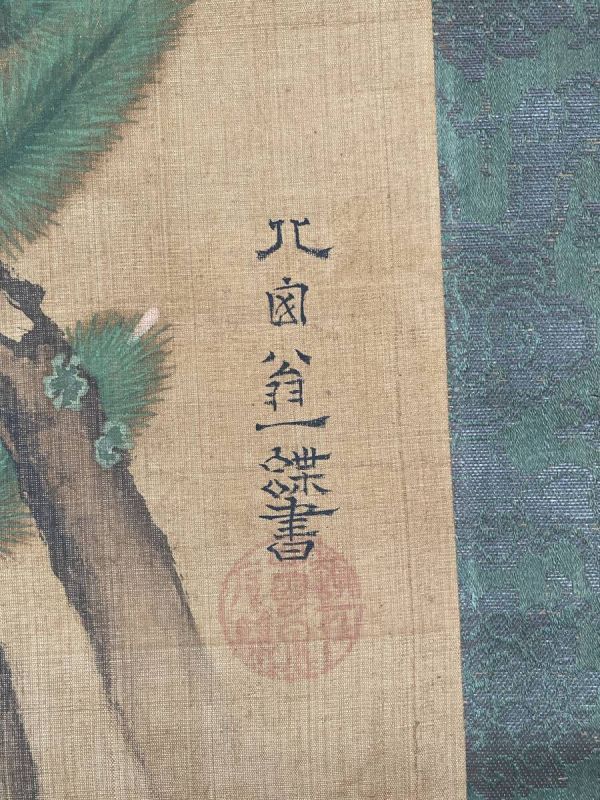 北囪翁一蝶書